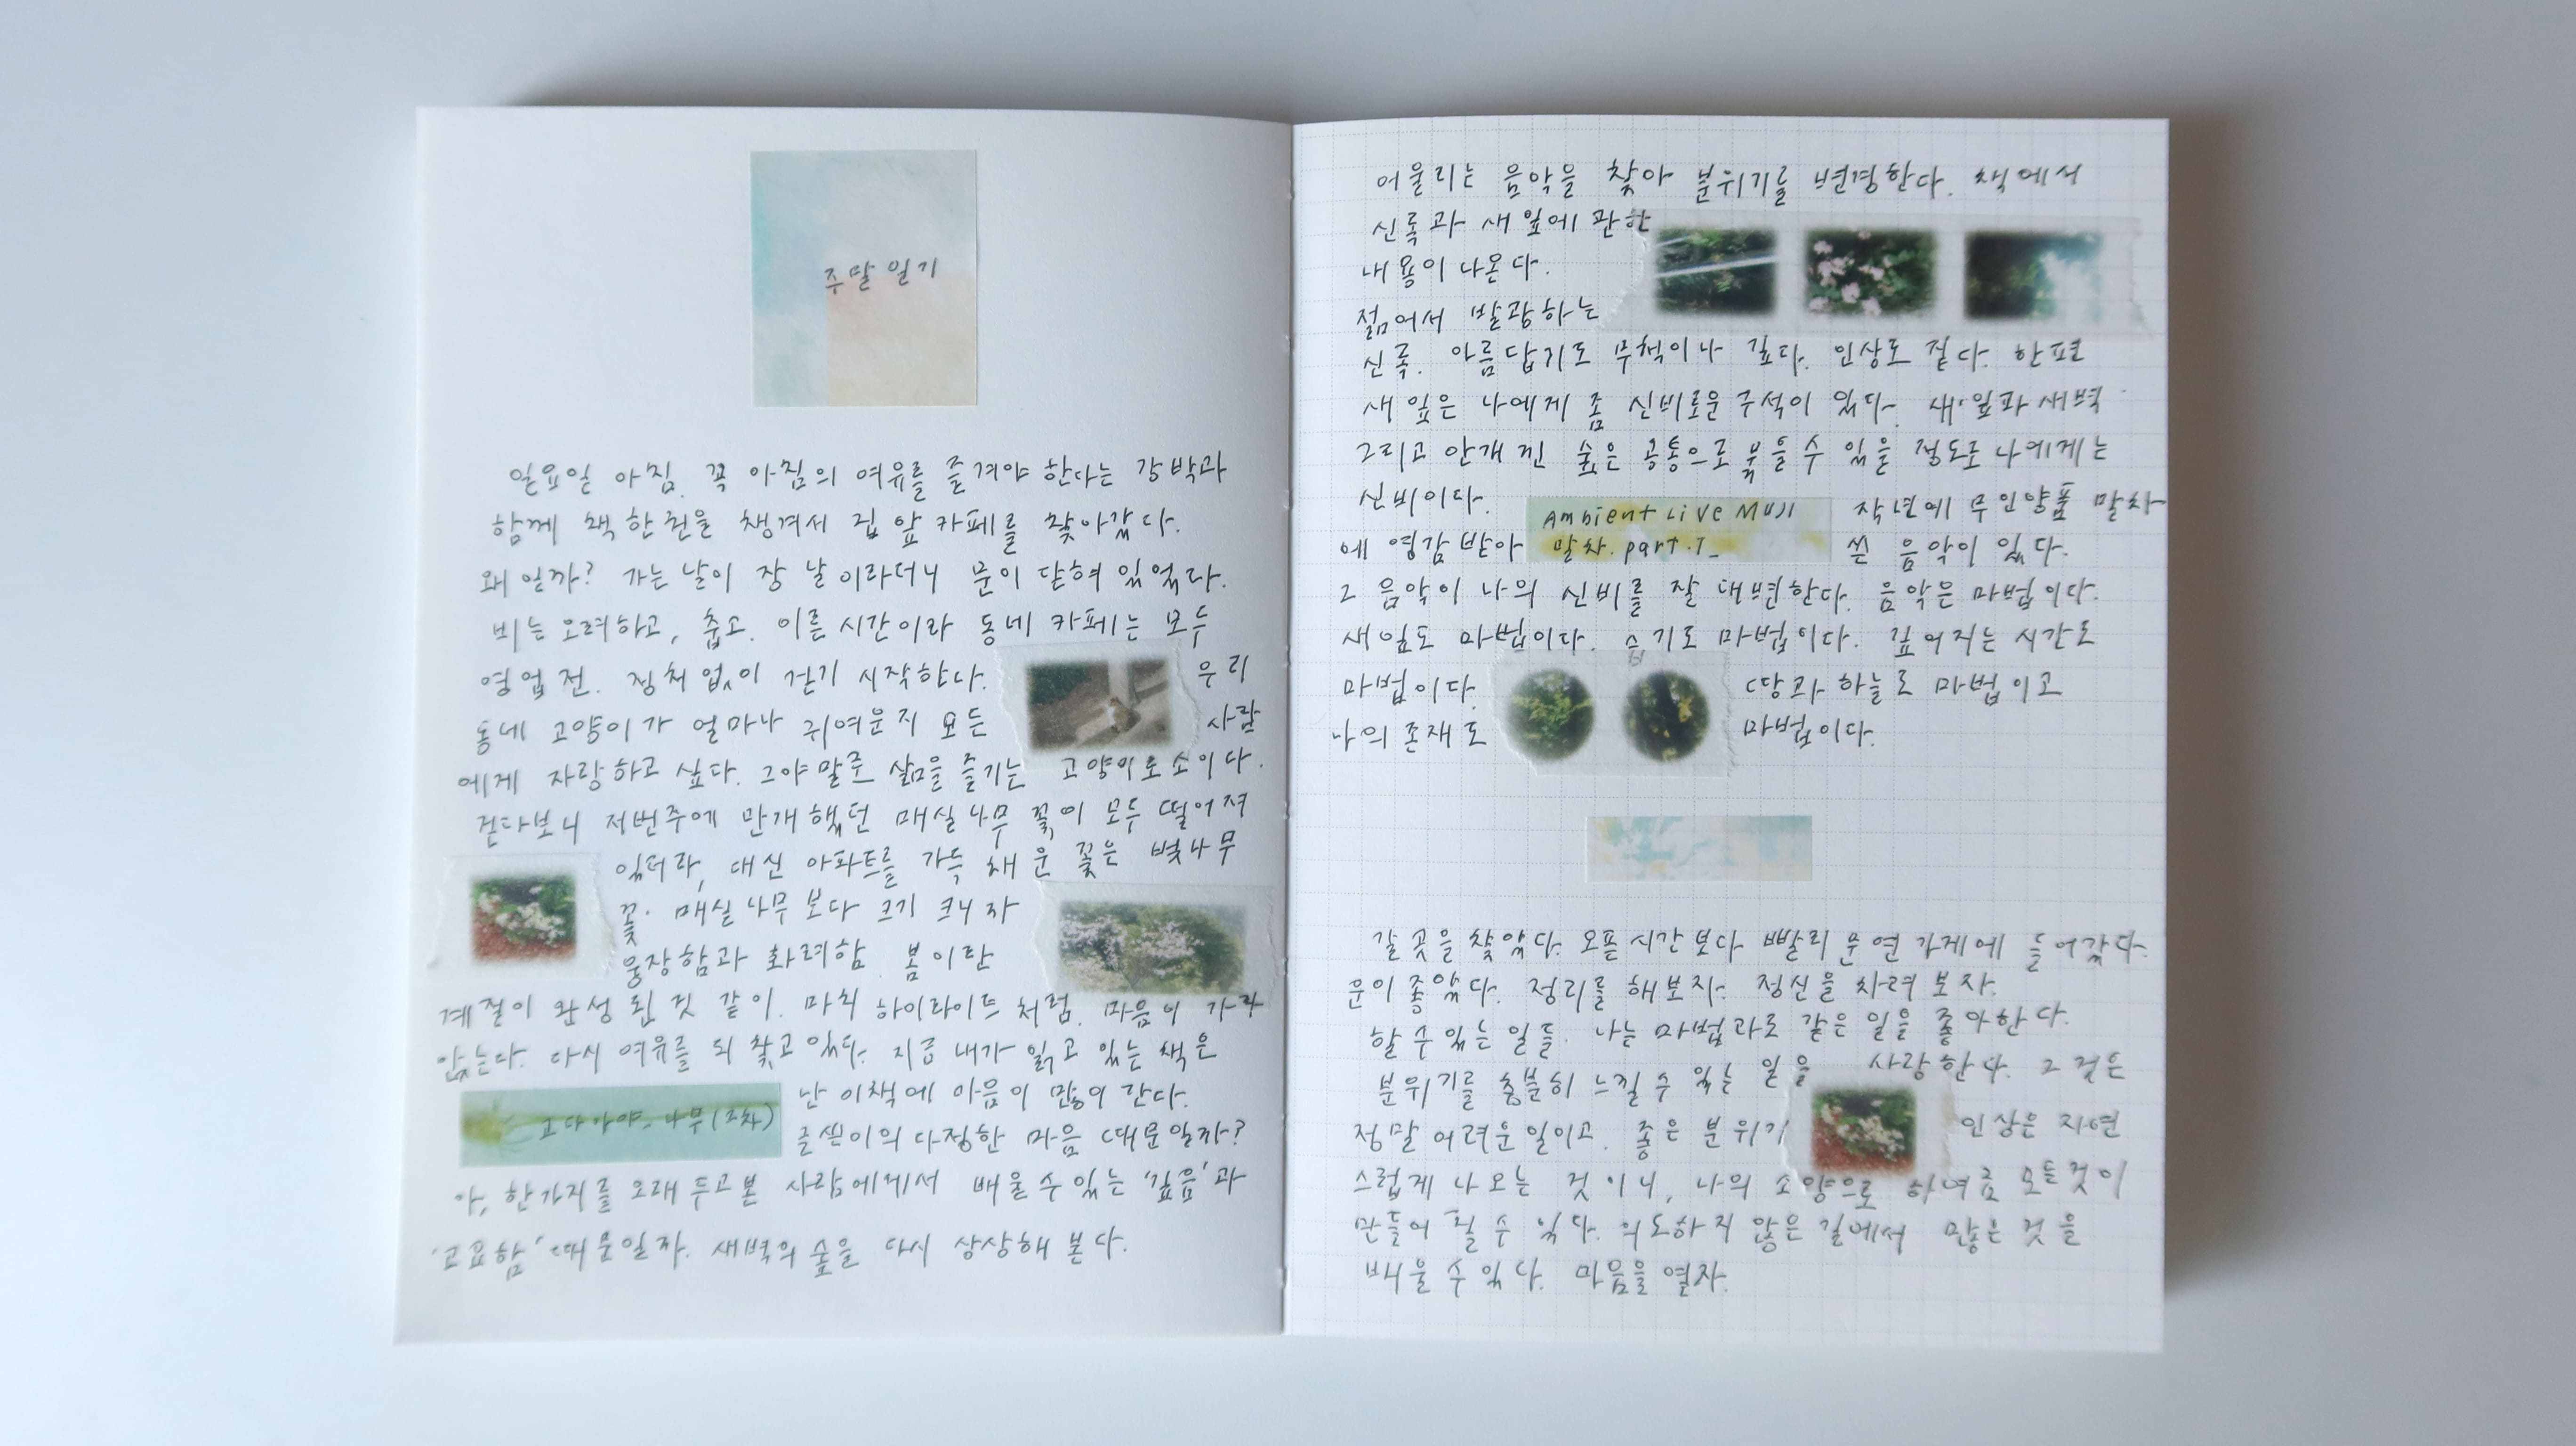 주말일기
일요일 아침. 꼭 아침의 여유를 즐겨야 한다는 강박과
함께 책 한권을 챙겨서 집 앞 카페를 찾아갔다.
왜일까? 가는 날이 장 날이라더니 문이 닫혀 있었다.
비는 오려하고, 춥고. 이른 시간이라 동네 카페는 모두
영업전. 정처없이 걷기 시작한다. 우리
동네 고양이가 얼마나 귀여운지 모든 사람
에게 자랑하고 싶다. 그야말로 삶을 즐기는 고양이로소이다.
걷다보니 저번주에 만개했던 매실나무 꽃이 모두 떨어져
있더라, 대신 아파트를 가득 채운 꽃은 벚나무
꽃. 매실나무 보다 크기 크니 자
웅장함과 화려함. 봄이란
계절이 완성 된 것 같이. 마치 하이라이트 처럼. 마음이 가라
앉는다. 다시 여유를 되 찾고 있다. 지금 내가 읽고 있는 책은
고다 아야, 나무(2차)
난 이책에 마음이 많이 간다.
글쓴이의 다정한 마음 때문일까?
아, 한가지를 오래 두고 본 사람에게서 배울 수 있는 '깊음'과
'고요함' 때문일까. 새벽의 숲을 다시 상상해 본다.
어울리는 음악을 찾아 분위기를 변경한다. 책에서
신록과 새 잎에 관한
내용이 나온다.
젊어서 발광하는
신록. 아름답기도 무척이나 깊다. 인상도 짙다. 한편
새 잎은 나에게 좀 신비로운 구석이 있다. 새잎과 새벽
그리고 안개 낀 숲은 공통으로 묶을 수 있을 정도로 나에게는
신비이다. Ambient Live MUJI 작년에 무인양품 말차
에 영감받아 말차. part.I_ 쓴 음악이 있다.
그 음악이 나의 신비를 잘 대변한다. 음악은 마법이다.
새잎도 마법이다. 습기도 마법이다. 깊어지는 시간도
마법이다. 땅과 하늘도 마법이고
나의 존재도 마법이다.
갈 곳을 찾았다. 오픈시간보다 빨리 문연 가게에 들어갔다.
운이 좋았다. 정리를 해보자. 정신을 차려 보자.
할 수 있는 일들. 나는 마법과도 같은 일을 좋아한다.
분위기를 충분히 느낄 수 있는 일을 사랑한다. 그것은
정말 어려운 일이고. 좋은 분위기 인상은 자연
스럽게 나오는 것이니, 나의 소양으로 하여금 모든것이
만들어 질 수 있다. 의도하지 않은 길에서 많은 것을
배울 수 있다. 마음을 열자.